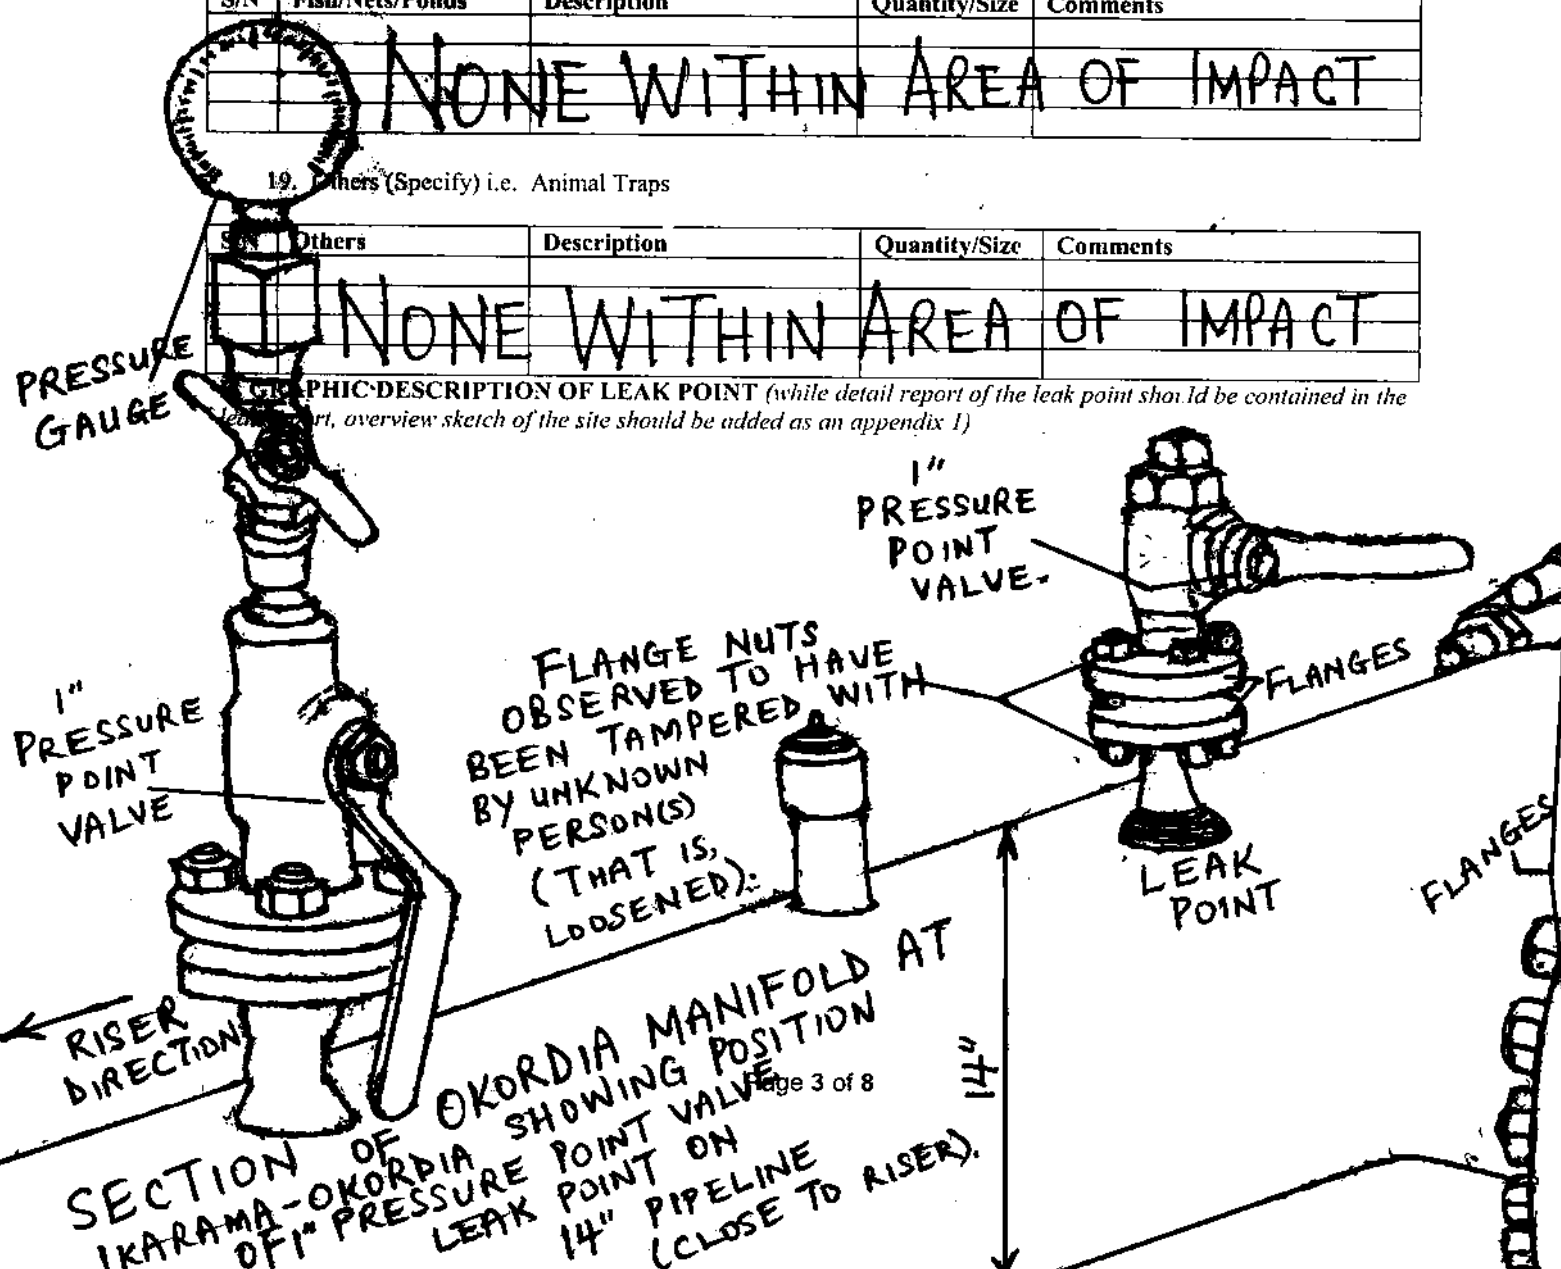 S/N Fish/Nets/Ponds Description Quantity/Size Comments
NONE WITHIN AREA OF IMPACT
19. Others (Specify) i.e. Animal Traps
S/N Others Description Quantity/Size Comments
NONE WITHIN AREA OF IMPACT
GRAPHIC DESCRIPTION OF LEAK POINT (while detail report of the leak point should be contained in the
overview sketch of the site should be added as an appendix 1)
PRESSURE
GAUGE
1"
PRESSURE
POINT
VALVE
1"
PRESSURE
POINT
VALVE.
FLANGE NUTS
OBSERVED TO HAVE
BEEN TAMPERED WITH
BY UNKNOWN
PERSON(S)
(THAT IS,
LOOSENED).
FLANGES
LEAK
POINT
FLANGES
RISER
DIRECTION
14"
SECTION OF OKORDIA MANIFOLD AT
IKARAMA-OKORDIA SHOWING POSITION
OF 1" PRESSURE POINT VALVE
LEAK POINT ON
14" PIPELINE
(CLOSE TO RISER).
Page 3 of 8